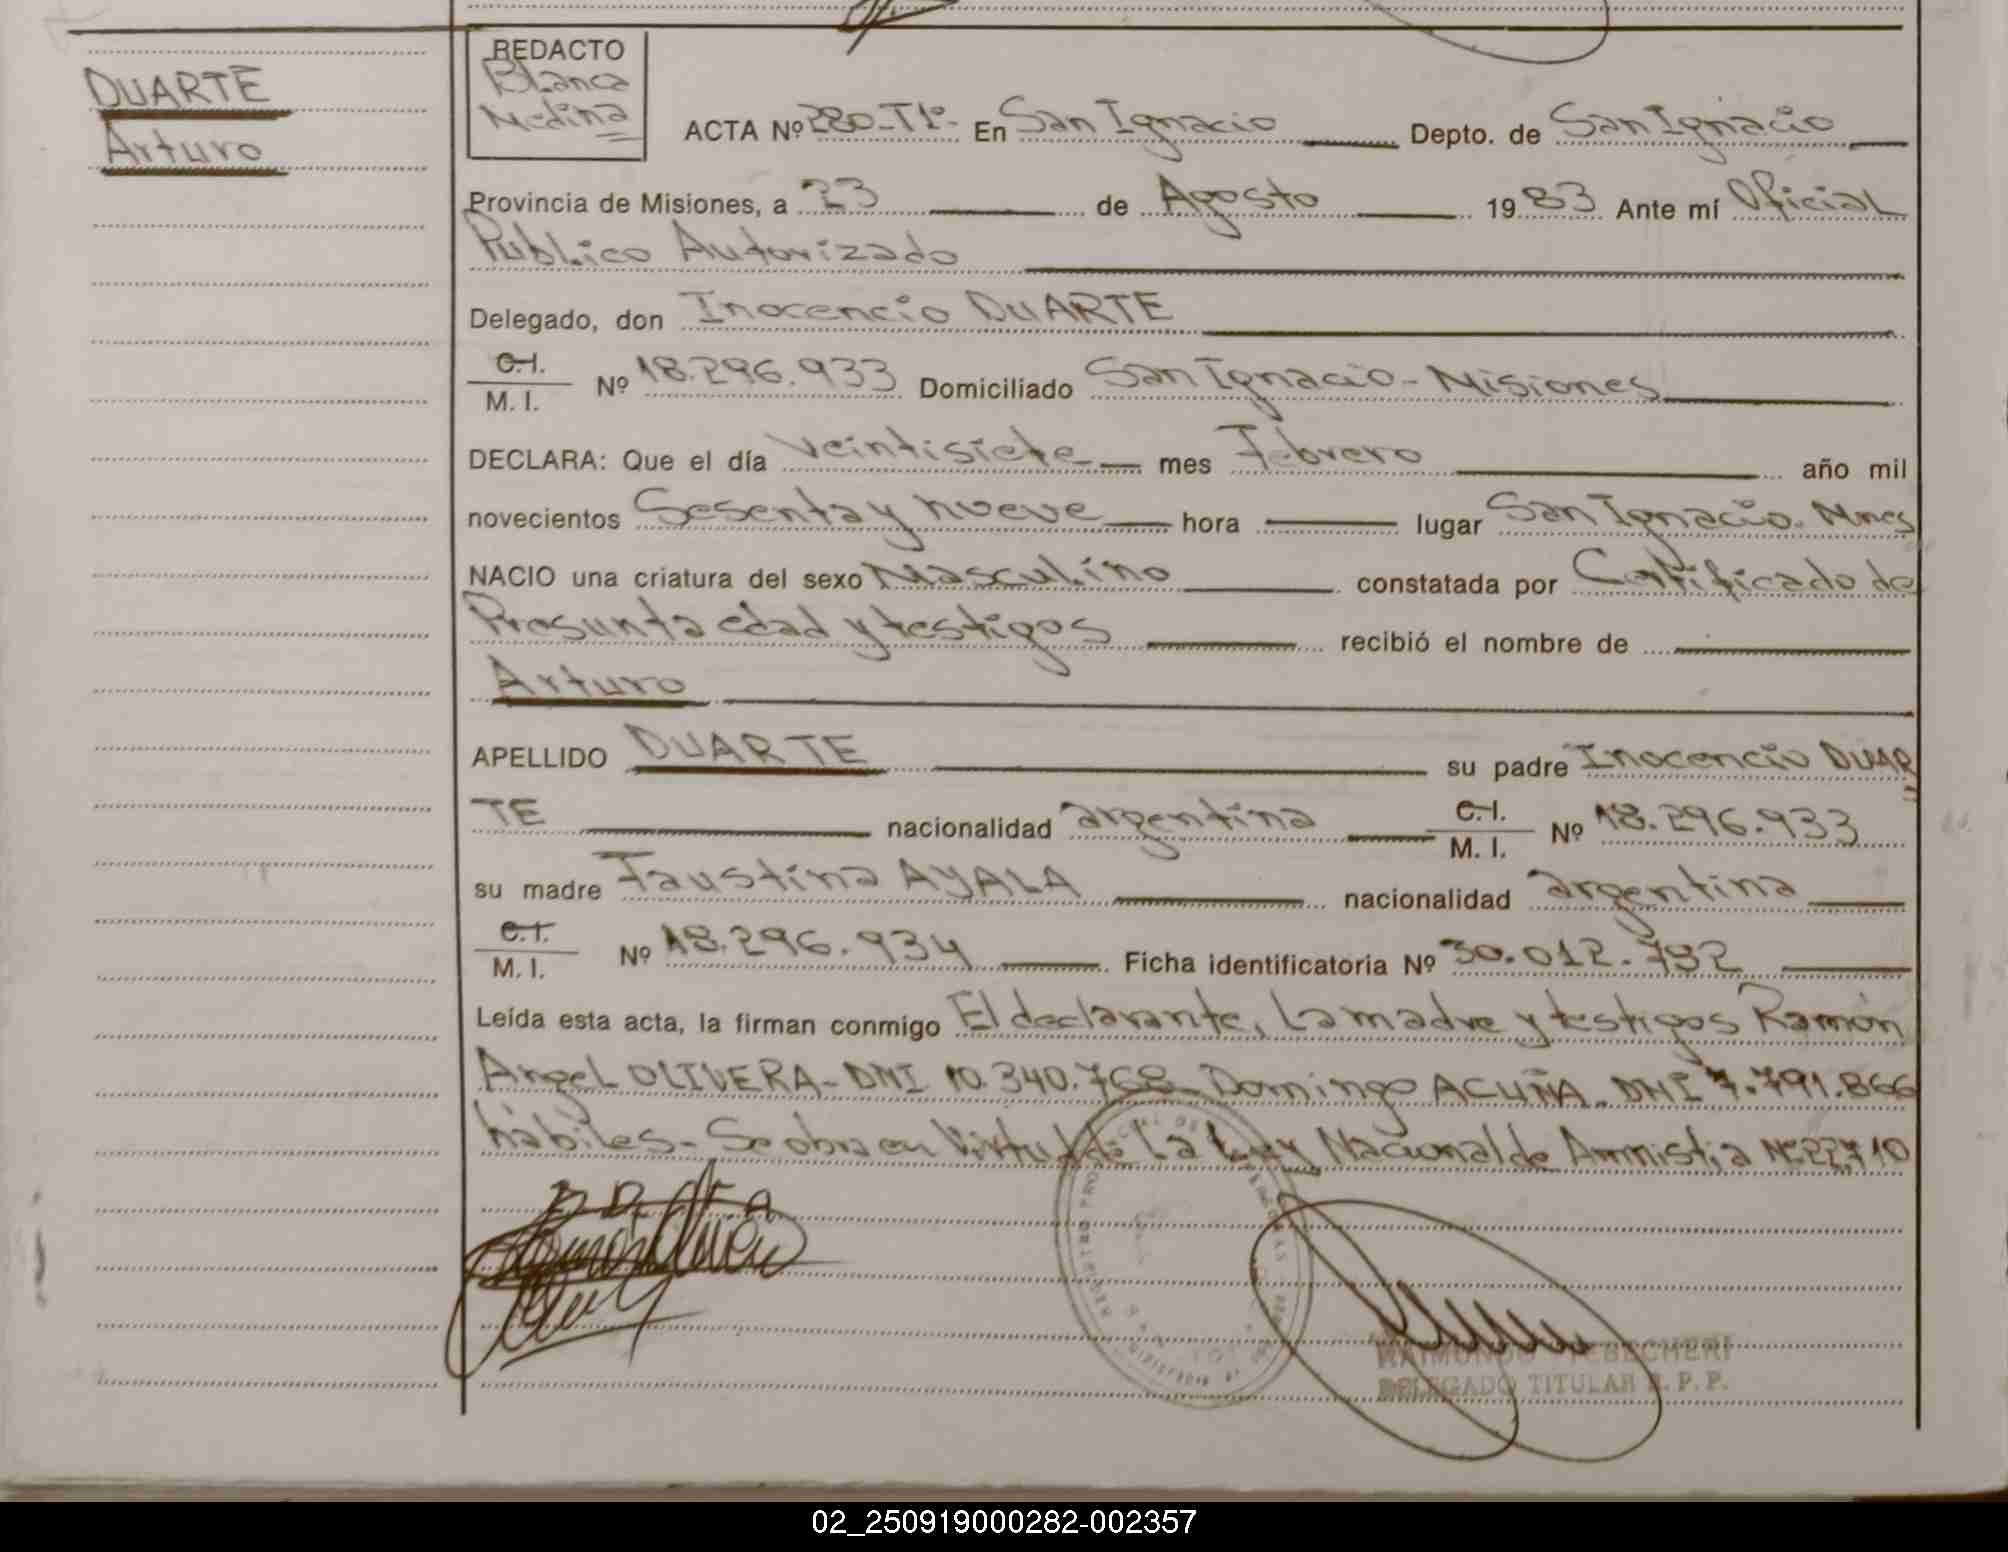 DUARTE
Arturo
REDACTO
Blanca
Medina
ACTA Nº 280-T1º- En San Ignacio Depto. de San Ignacio
Provincia de Misiones, a 23 de Agosto 1983 Ante mí Oficial
Publico Autorizado
Delegado, don Inocencio DUARTE
C.I.
M. I. Nº 18.296.933 Domiciliado San Ignacio - Misiones
DECLARA: Que el día veintisiete mes Febrero año mil
novecientos Sesenta y nueve hora lugar San Ignacio. Mnes
NACIO una criatura del sexo Masculino constatada por Certificado de
Presunta edad y testigos recibió el nombre de
Arturo
APELLIDO DUARTE su padre Inocencio DUAR
TE nacionalidad argentina C.I. M. I. Nº 18.296.933
su madre Faustina AYALA nacionalidad argentina
C.I.
M. I. Nº 18.296.934 Ficha identificatoria Nº 30.012.792
Leída esta acta, la firman conmigo El declarante, La madre y testigos Ramón
Angel OLIVERA - DNI 10.340.768 Domingo ACUÑA. DNI 7.791.866
hábiles - Se obra en Virtud de La Ley Nacional de Amnistia Nº 22.710
RAIMUNDO
DELEGADO TITULAR R. P. P.
02_250919000282-002357